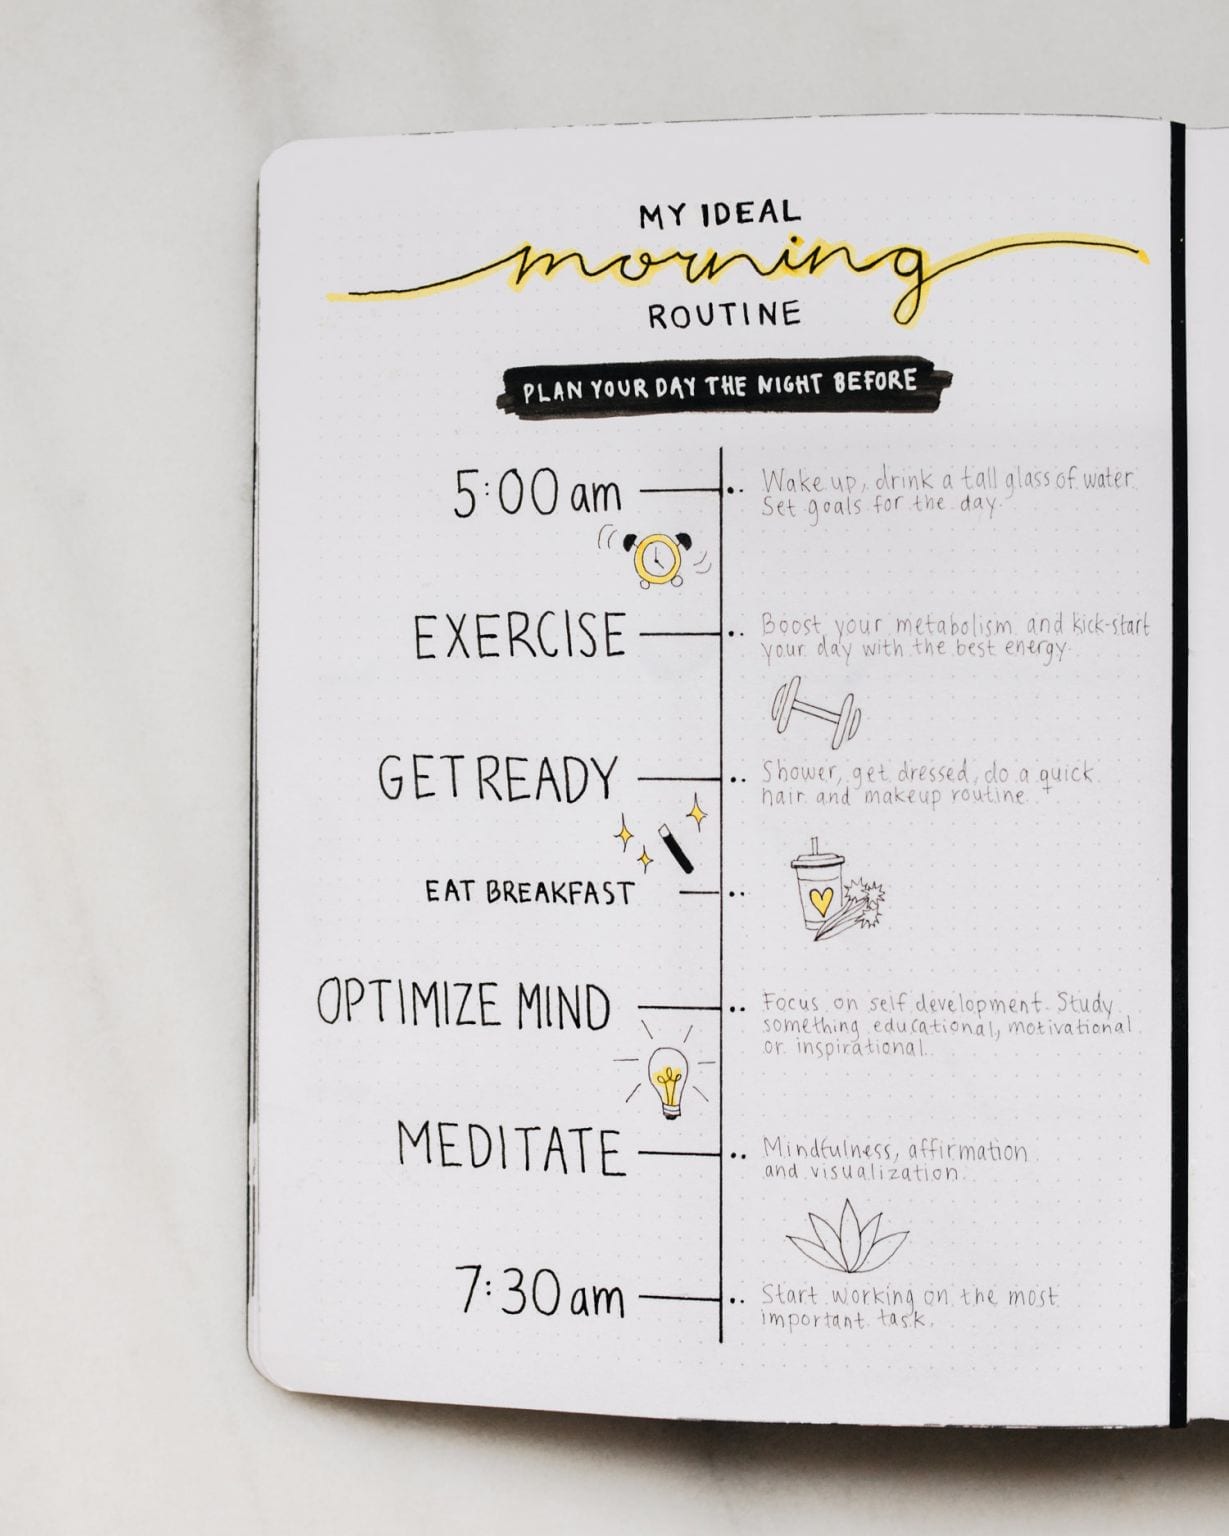 MY IDEAL
morning
ROUTINE
PLAN YOUR DAY THE NIGHT BEFORE
5:00 am
Wake up, drink a tall glass of water.
Set goals for the day.
EXERCISE
Boost your metabolism and kick-start
your day with the best energy.
GET READY
Shower, get dressed, do a quick
hair and makeup routine.
EAT BREAKFAST
OPTIMIZE MIND
Focus on self development. Study
something educational, motivational
or inspirational.
MEDITATE
Mindfulness, affirmation
and visualization.
7:30 am
Start working on the most
important task.